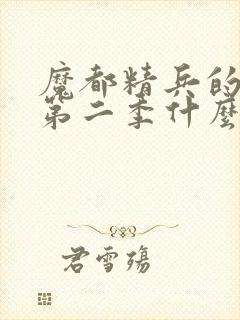 魔都精兵的
第二季什麼
君雪殤